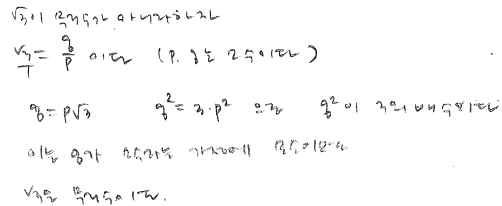 √3이 무리수가 아니라하자
√3/1 = q/p 이다 (p, q는 정수이다)
q = p√3 q² = 3·p² 으로 q²이 3의 배수이다
이는 q가 정수라는 가정에 모순이므로
√3은 무리수이다.